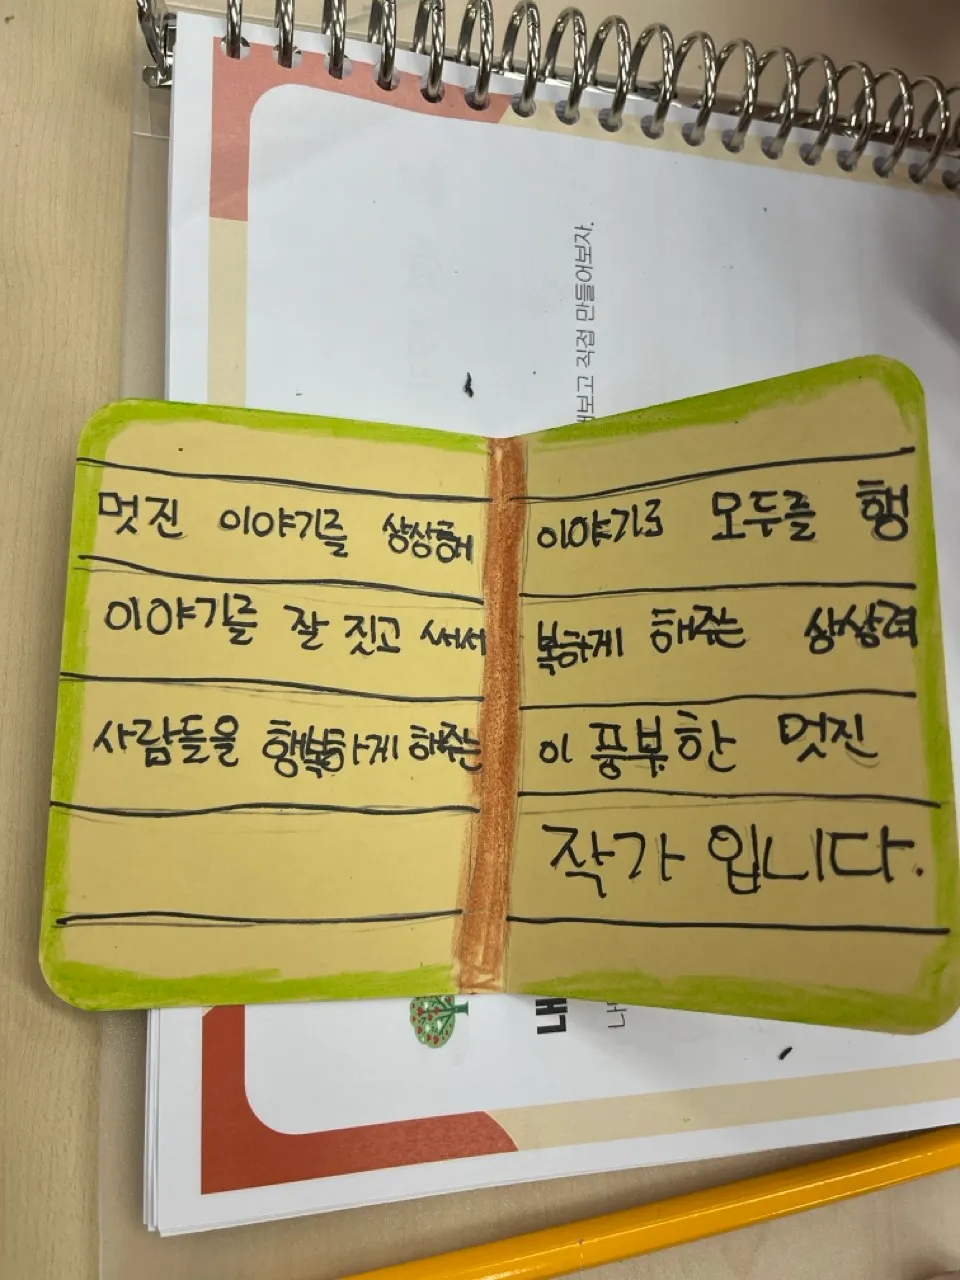 멋진 이야기를 상상해
이야기를 잘 짓고 써서
사람들을 행복하게 해주는
이야기로 모두를 행
복하게 해주는 상상력
이 풍부한 멋진
작가 입니다.
보고 직접 만들어보자.
내